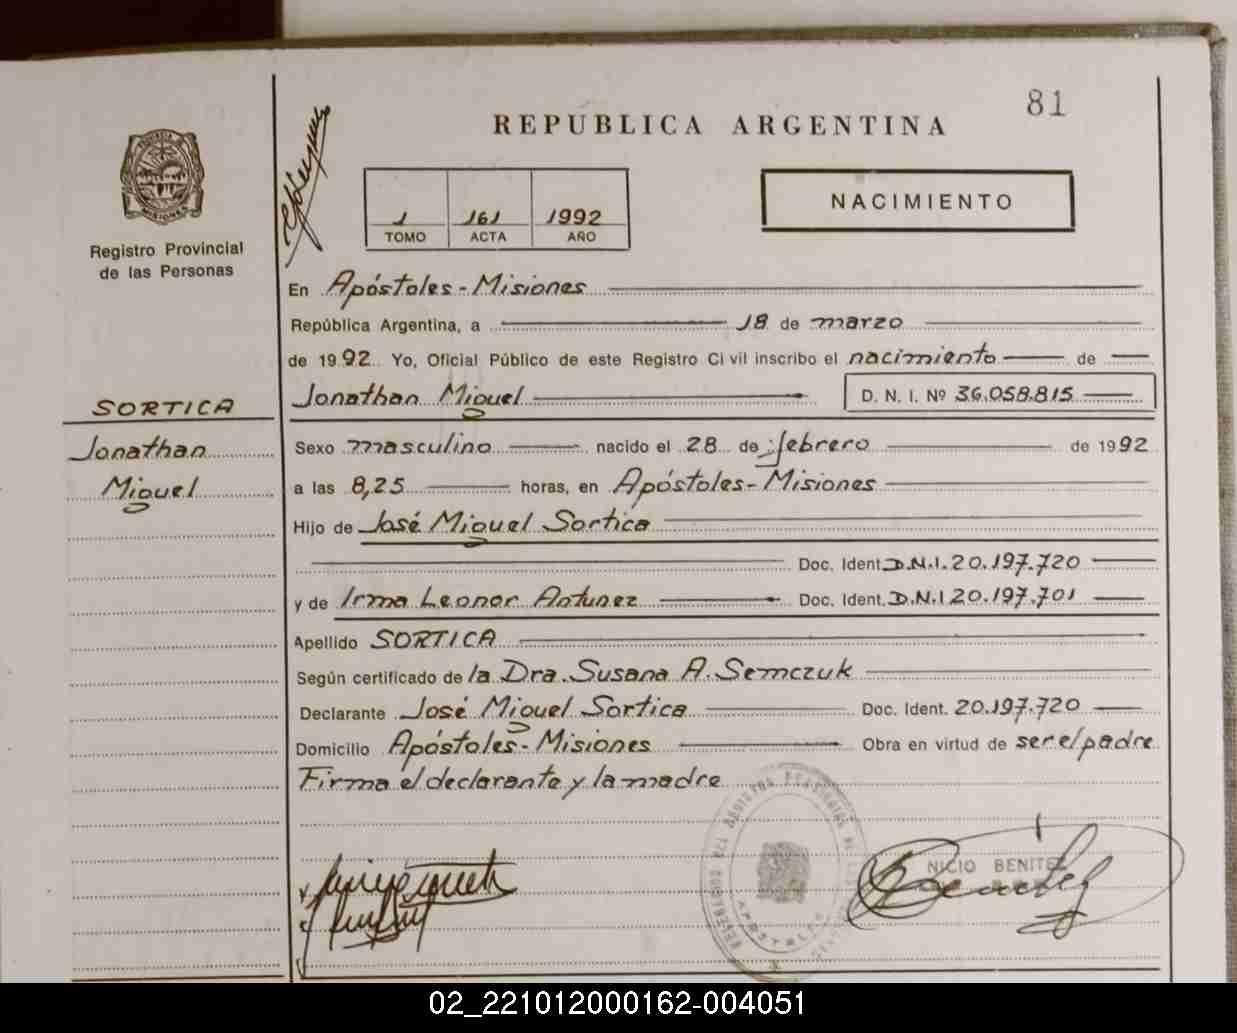 81
REPUBLICA ARGENTINA
NACIMIENTO
1 161 1992
TOMO ACTA AÑO
MISIONES
Registro Provincial
de las Personas
SORTICA
Jonathan
Miguel
En Apóstoles - Misiones
República Argentina, a 18 de marzo
de 1992 Yo, Oficial Público de este Registro Civil inscribo el nacimiento de
Jonathan Miguel D. N. I. Nº 36.058.815
Sexo masculino nacido el 28 de febrero de 1992
a las 8,25 horas, en Apóstoles - Misiones
Hijo de José Miguel Sortica
Doc. Ident. D.N.I. 20.197.720
y de Irma Leonor Antunez Doc. Ident. D.N.I 20.197.701
Apellido SORTICA
Según certificado de la Dra. Susana A. Semczuk
Declarante José Miguel Sortica Doc. Ident. 20.197.720
Domicilio Apóstoles - Misiones Obra en virtud de ser el padre
Firma el declarante y la madre
NICIO BENITEZ
APOSTOLES
02_221012000162-004051